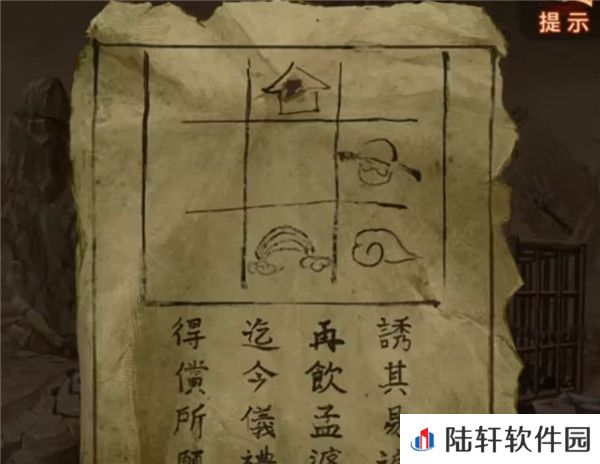 提示
誘其易
再飲孟婆
迄今儀禮
得償所願
陆轩软件园